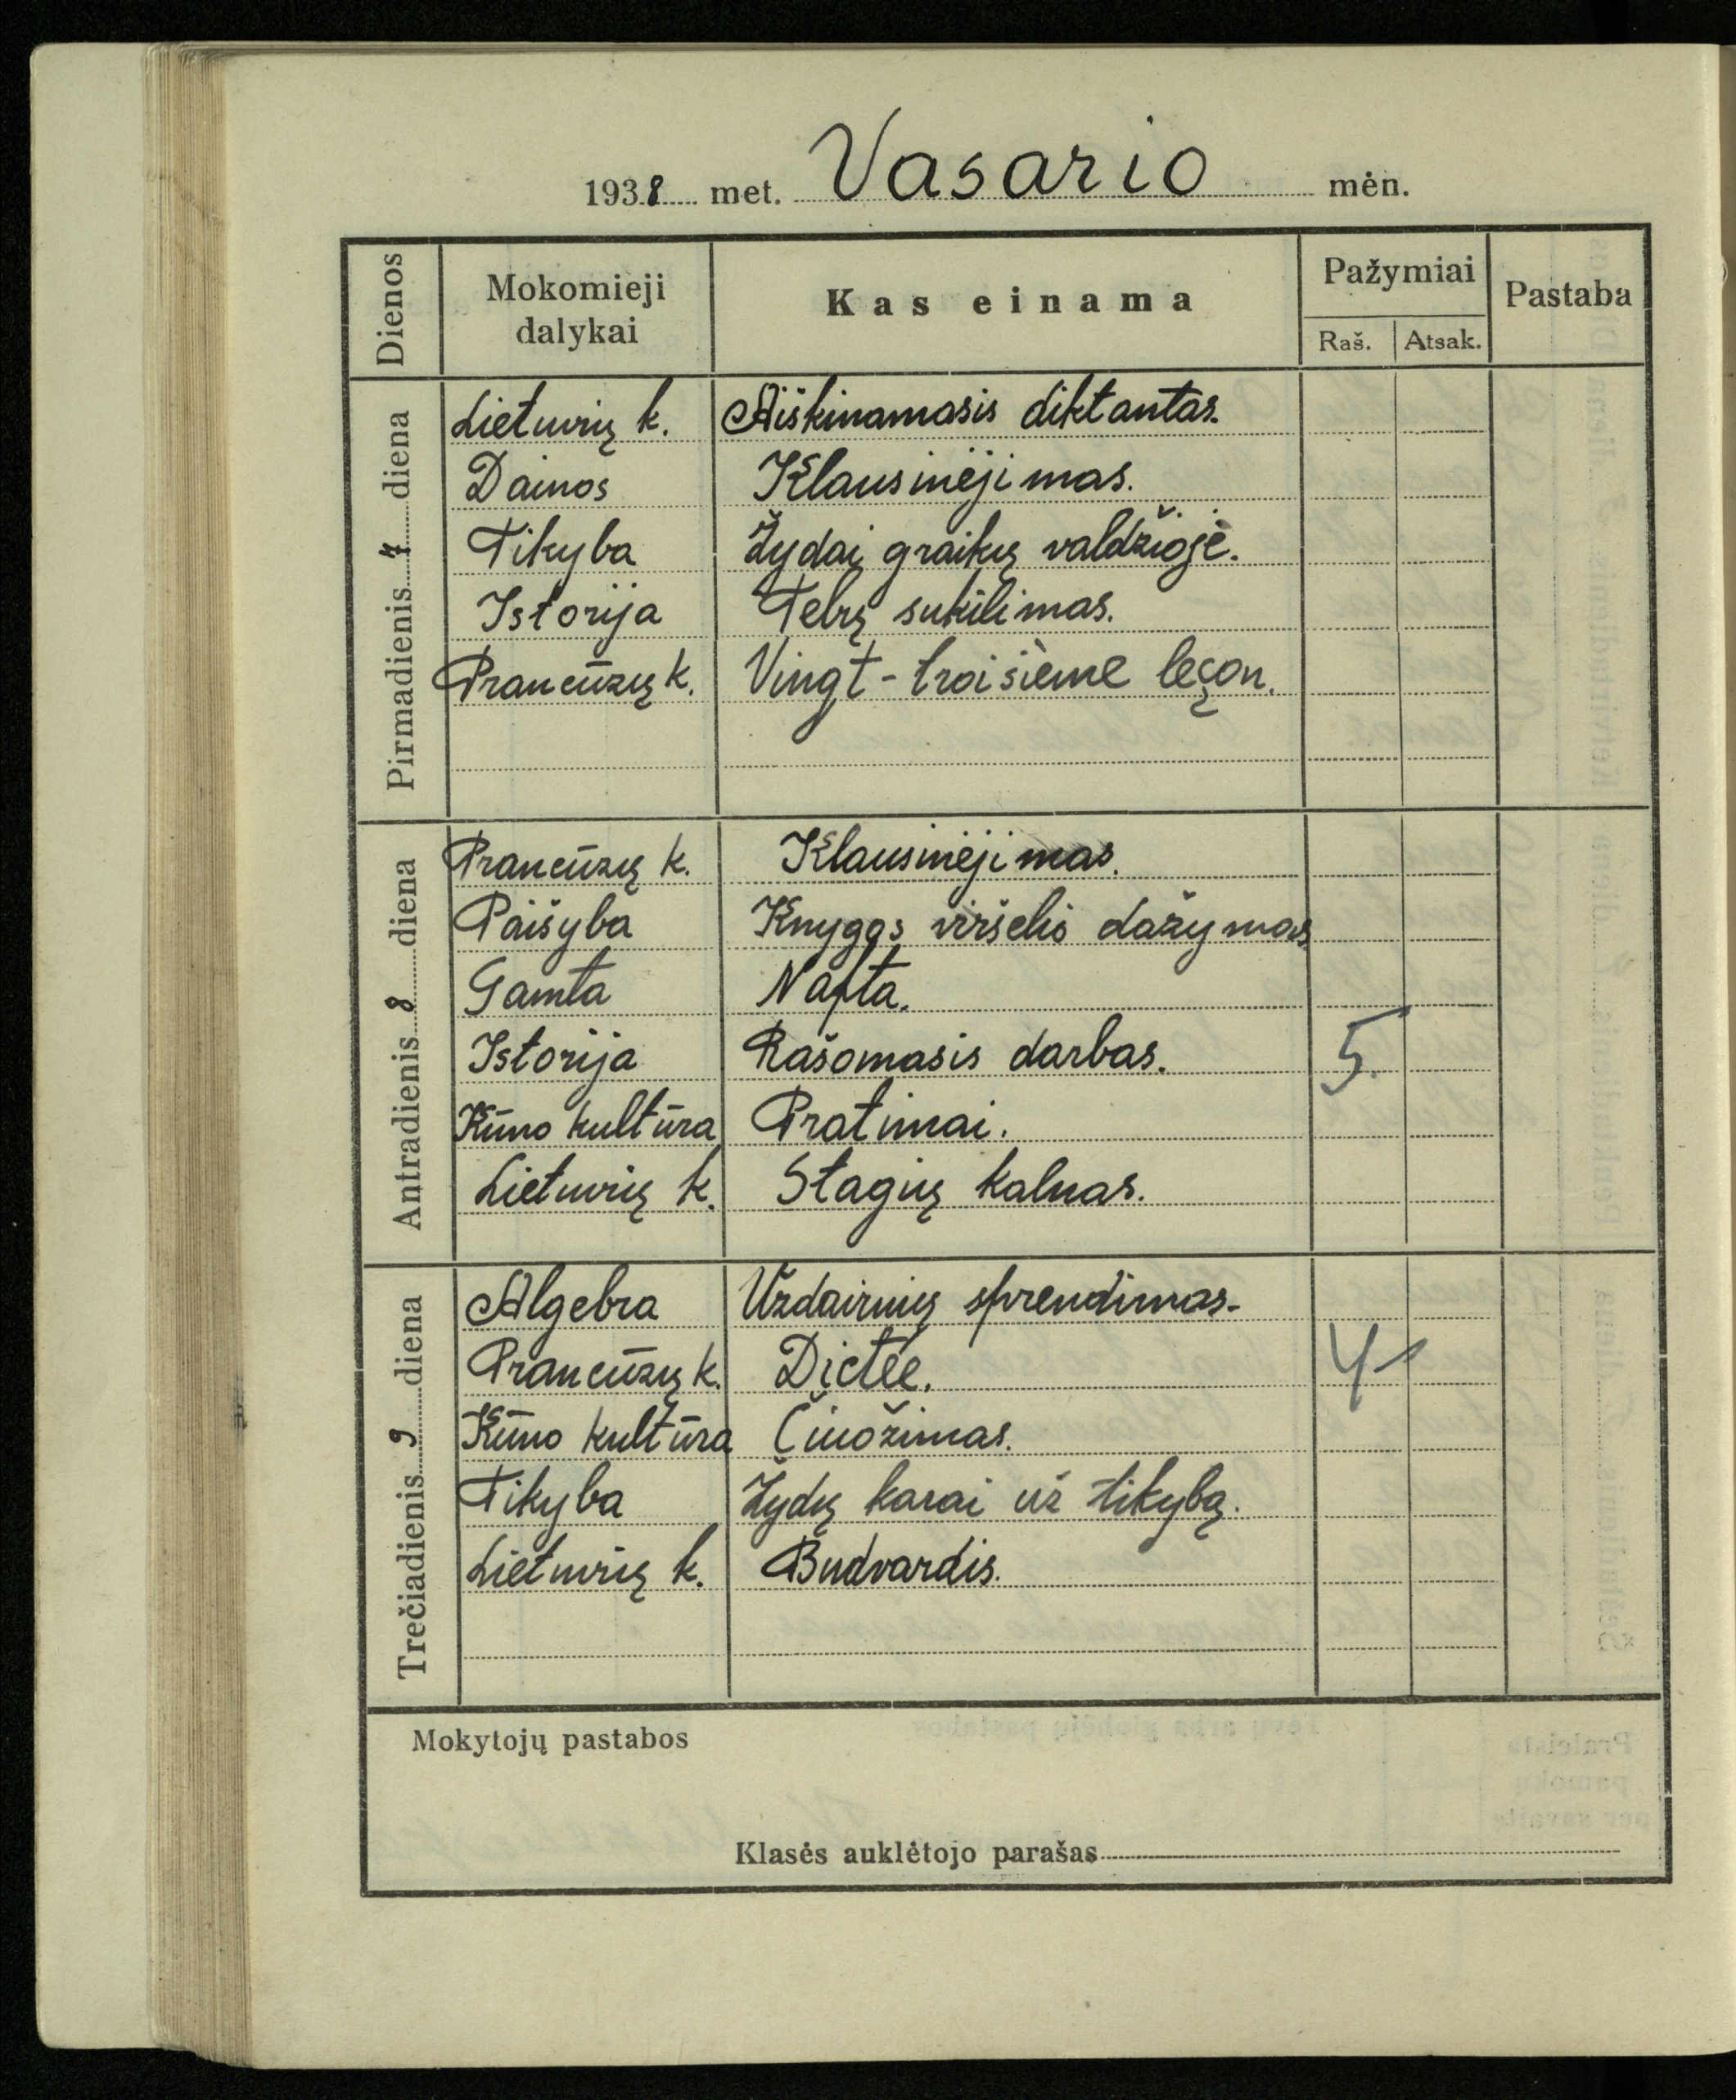 1938 met. Vasario mėn.
Dienos Mokomieji dalykai Kas einama Pažymiai Pastaba
Raš. Atsak.
Pirmadienis 7 diena
Lietuvių k. Aiškinamasis diktantas.
Dainos Klausinėjimas.
Tikyba Žydai graikų valdžioje.
Istorija sukilimas.
Prancūzų k. Vingt-troisième leçon.
Antradienis 8 diena
Prancūzų k. Klausinėjimas.
Paišyba Knygos viršelio dažymas
Gamta Nafta.
Istorija Rašomasis darbas. 5.
Kūno kultūra Pratimai.
Lietuvių k. Stagių kalnas.
Trečiadienis 9 diena
Algebra Uždavinių sprendimas.
Prancūzų k. Dictée. 4
Kūno kultūra Čiuožimas.
Tikyba Žydų karai už tikybą.
Lietuvių k. Budvardis.
Mokytojų pastabos
Klasės auklėtojo parašas